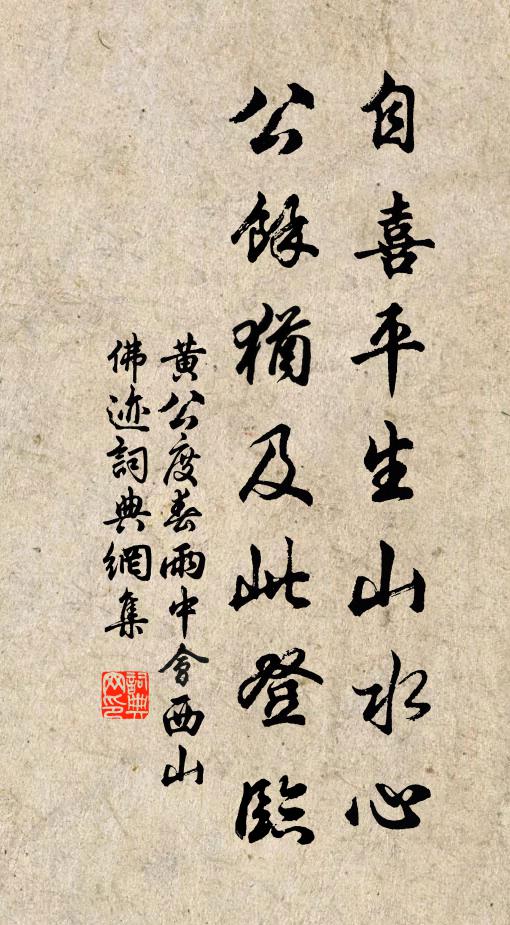 自喜平生山水心
公餘猶及此登臨
黃公度春雨中會西山
佛迹詞典網集
詞典网印